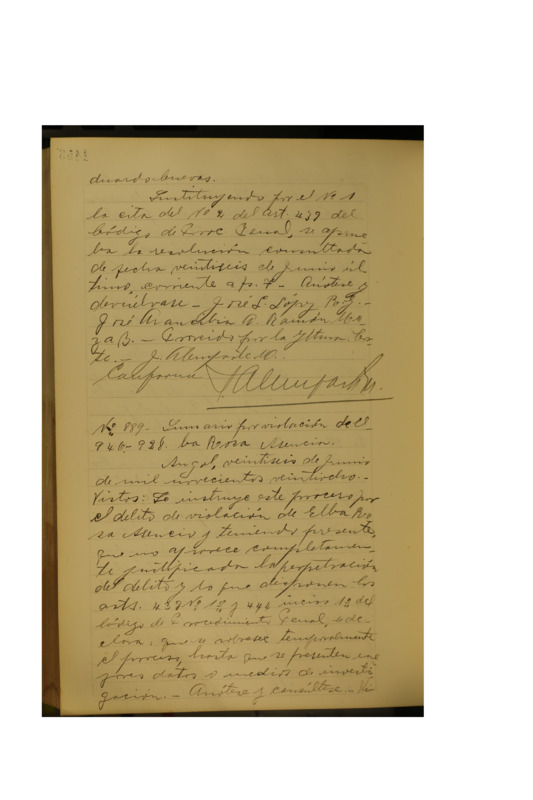 duardo Cuevas.
Sustituyendo por el Nº 1
la cita del Nº 2 del art. 439 del
Código de Proc Penal, se aprue
ba la resolución consultada
de fecha veintiseis de Junio úl
timo, corriente a fs. 7 - Anótese y
devuélvase - José L López
José Arancibia A. Ramón
- Proveido por la Iltma. Cor
te. -
Nº 889 - Sumario por violación de El
ba Rosa Asencio.
Angol, veintiseis de junio
de mil novecientos veintiocho. -
Vistos: Se instruye este proceso por
el delito de violación de Elba Ro
sa Asencio y teniendo presente,
que no aparece completamen
te justificada la perpetración
del delito y lo que disponen los
arts. Nº 1º y inciso 1º del
Código de Procedimiento Penal, se de-
clara: que se sobresee temporalmente
el proceso, hasta que se presenten me
jores datos o medios de investi
gación. - Anótese y consúltese. -